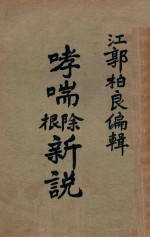 江郭柏良偏輯
哮喘除根新説